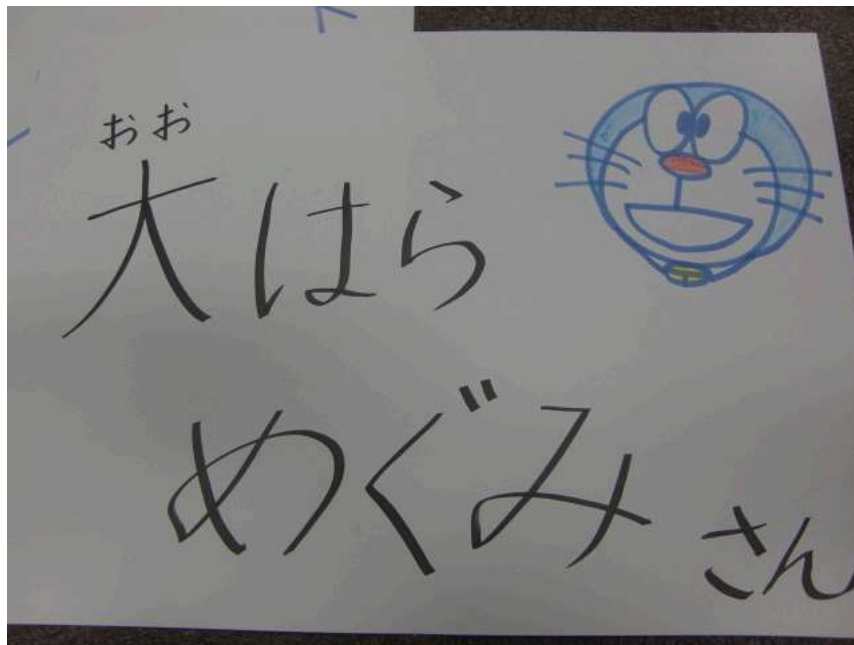 おお
大はら
めぐみ
さん